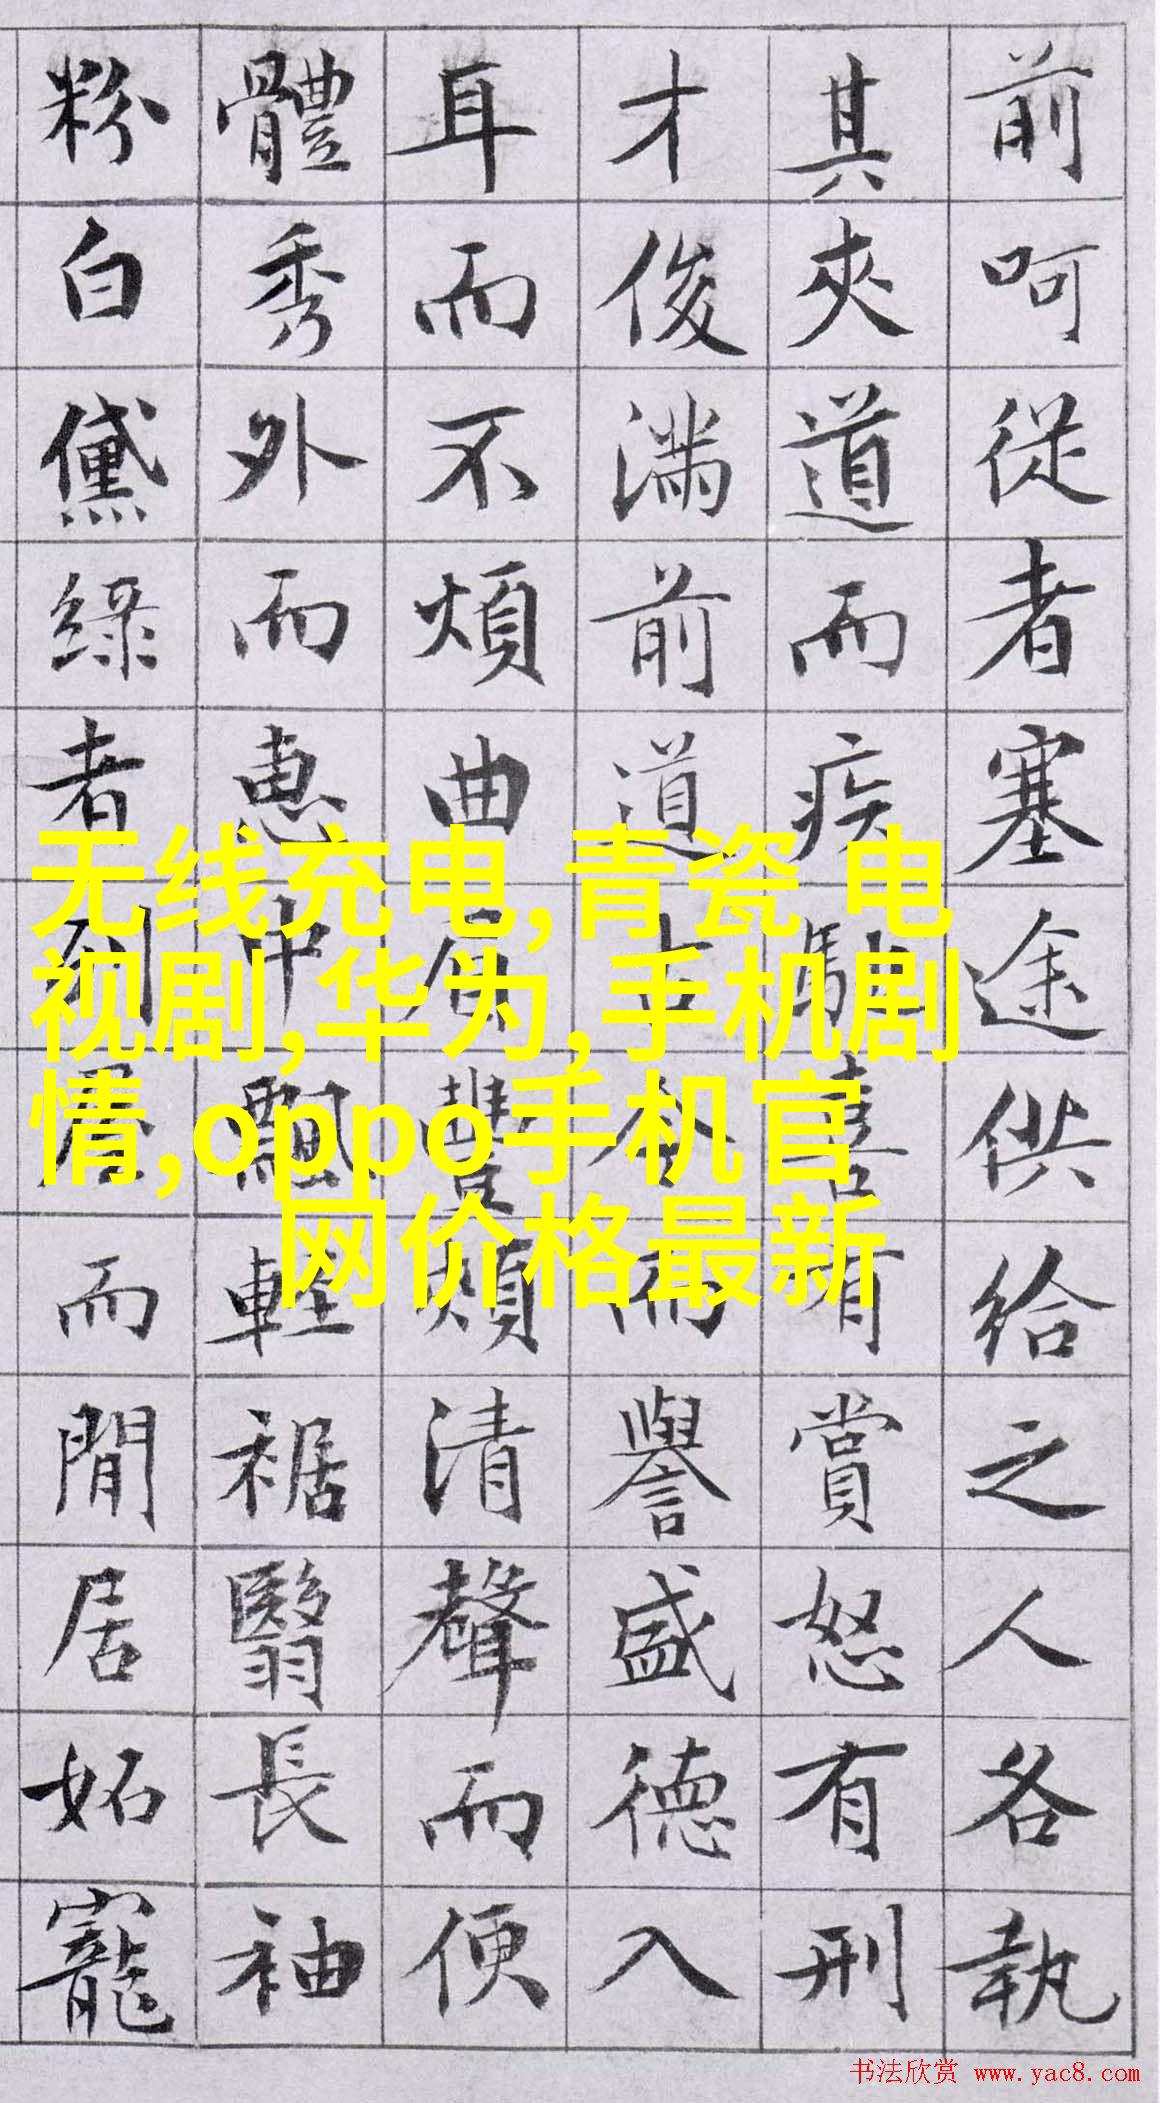 前呵從者塞途供給之人各執
其夾道而疾馳喜有賞怒有刑
才俊滿前道古今而譽盛德入
耳而不煩曲眉豐頰清聲而便
體秀外而惠中飄輕裾翳長袖
粉白黛綠者列屋而閒居妬寵
无线充电,青瓷 电
视剧,华为,手机剧
情,oppo手机官
网价格最新
书法欣赏 www.yac8.com